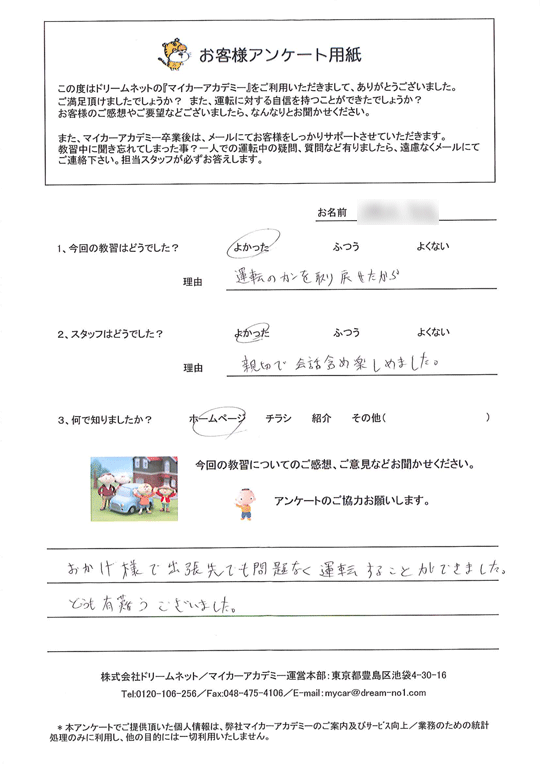 お客様アンケート用紙
この度はドリームネットの『マイカーアカデミー』をご利用いただきまして、ありがとうございました。
ご満足頂けましたでしょうか? また、運転に対する自信を持つことができたでしょうか?
お客様のご感想やご要望などございましたら、なんなりとお聞かせください。
また、マイカーアカデミー卒業後は、メールにてお客様をしっかりサポートさせていただきます。
教習中に聞き忘れてしまった事?一人での運転中の疑問、質問など有りましたら、遠慮なくメールにて
ご連絡下さい。担当スタッフが必ずお答えします。
お名前
1、今回の教習はどうでした? よかった ふつう よくない
理由 運転のカンを取り戻せたから
2、スタッフはどうでした? よかった ふつう よくない
理由 親切で会話含め楽しめました。
3、何で知りましたか? ホームページ チラシ 紹介 その他( )
今回の教習についてのご感想、ご意見などお聞かせください。
アンケートのご協力お願いします。
おかげ様で出張先でも問題なく運転することができました。
どうも有難うございました。
株式会社ドリームネット/マイカーアカデミー運営本部:東京都豊島区池袋4-30-16
Tel:0120-106-256/Fax:048-475-4106/E-mail:mycar@dream-no1.com
*本アンケートでご提供頂いた個人情報は、弊社マイカーアカデミーのご案内及びサービス向上/業務のための統計
処理のみに利用し、他の目的には一切利用いたしません。